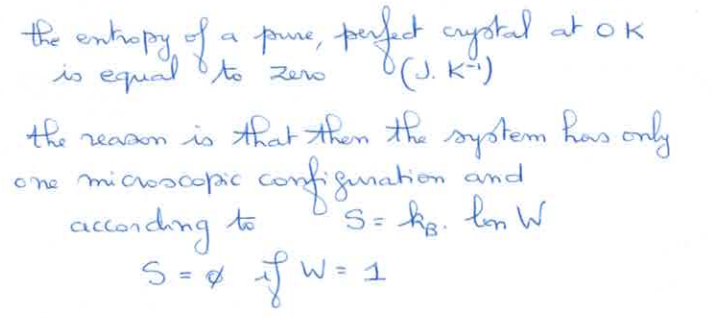 the entropy of a pure, perfect crystal at 0 K
is equal to zero (J. K⁻¹)
the reason is that then the system has only
one microscopic configuration and
according to S = k_B. ln W
S = ∅ if W = 1